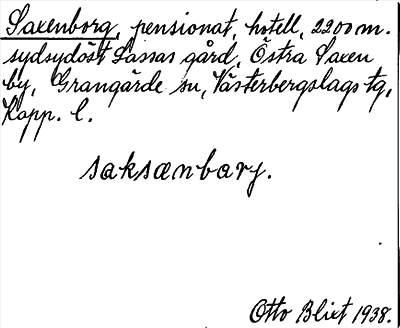 Saxenborg, pensionat, hotell, 2200 m.
sydsydöst Lassas gård, Östra Saxen
by, Grangärde sn, Västerbergslags tg,
Kopp. l.
saksænbarj.
Otto Blixt 1938.